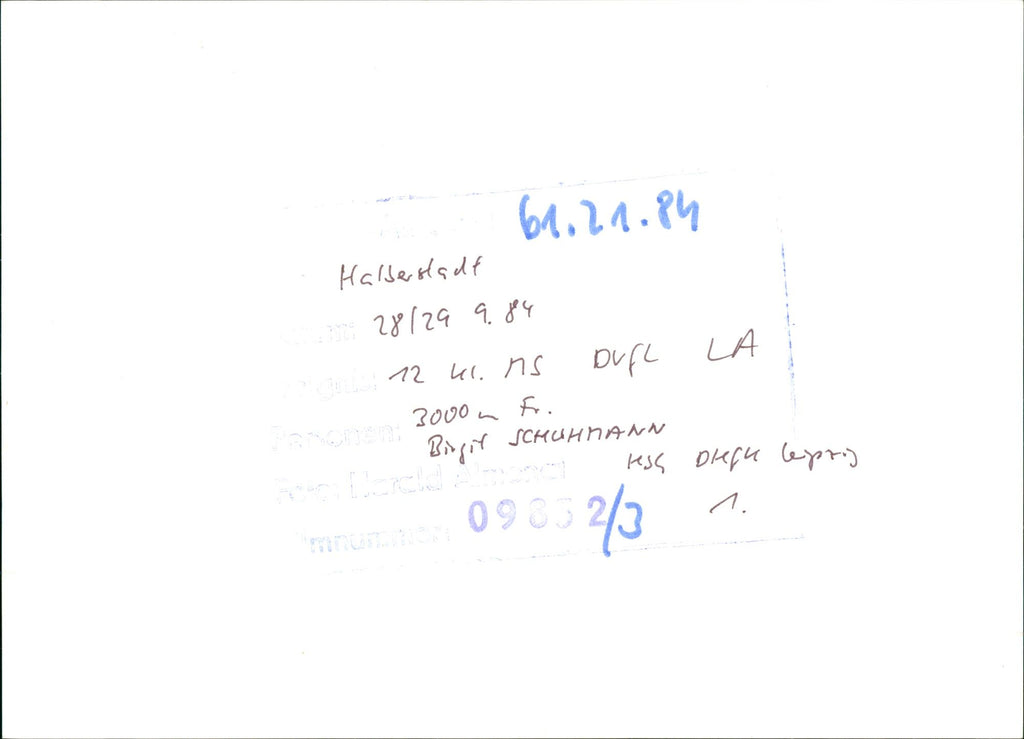 61.21.84
Halberstadt
28/29 9. 84
12 kl. MS DVfL LA
Personen: 3000 m Fr.
Birgit SCHUHMANN
HSG DHfK Leipzig
Foto: Harald Almonat
09832/3 1.